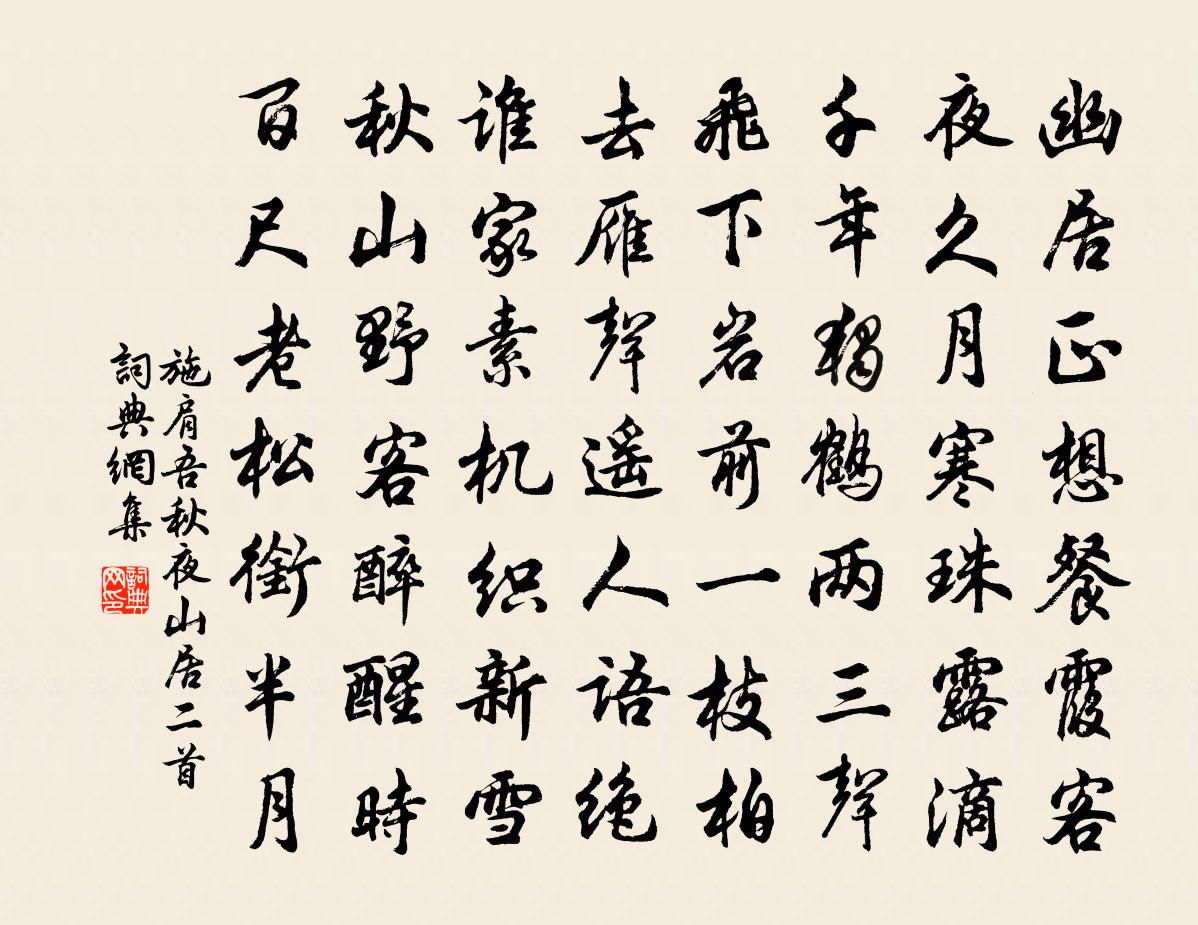 幽居正想餐霞客
夜久月寒珠露滴
千年独鹤两三聲
飛下岩前一枝柏
去雁聲遥人语绝
谁家素机织新雪
秋山野客醉醒時
百尺老松銜半月
施肩吾秋夜山居二首
詞典網集
詞典網印